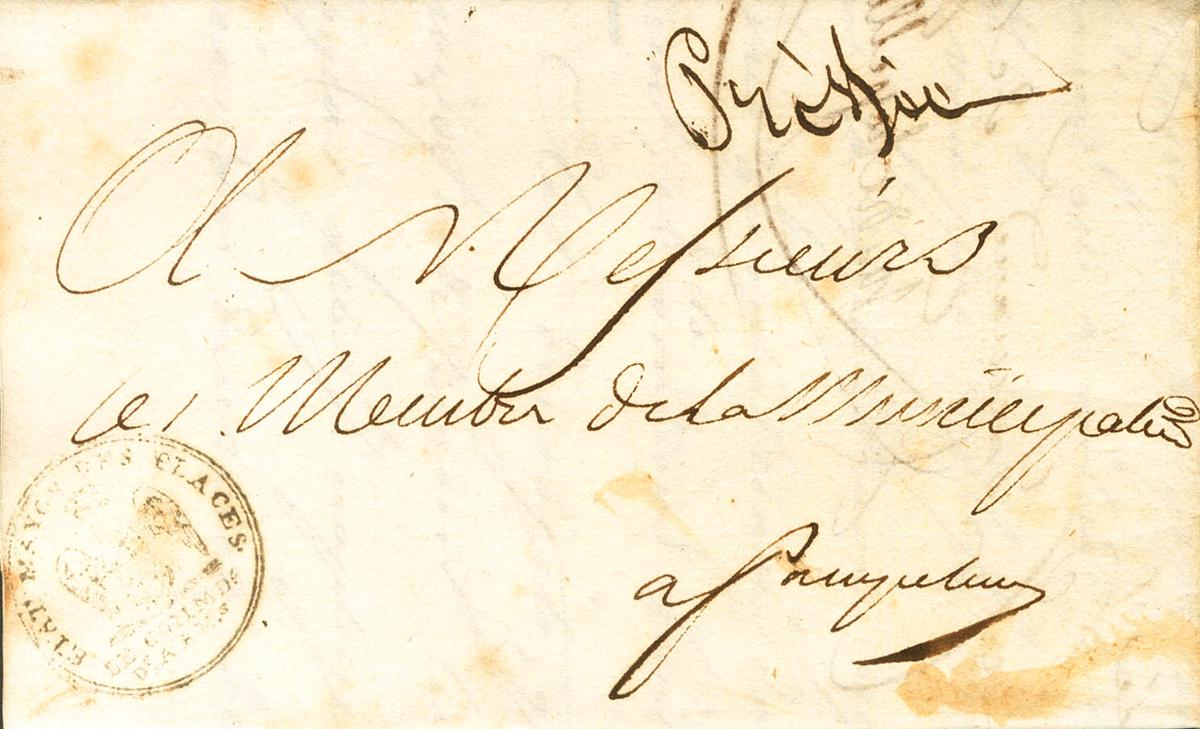 A Messieurs
les Membres de la Municipalité
a Pampelune
ETAT MAJOR DES PLACES.